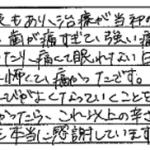 もあり、治療が当初の
歯が痛すぎて強い痛
たり、痛くて眠れない日
怖くてい痛かったです。
がよくなっていくことを
かったら、これ以上の辛さ
本当に感謝しています